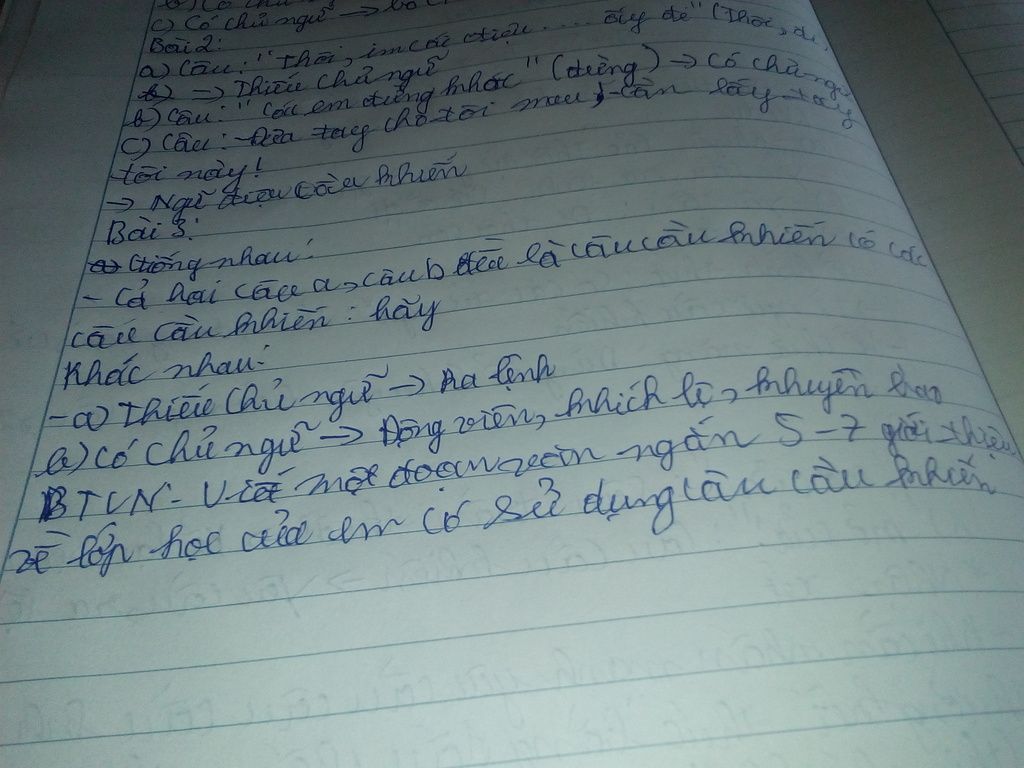 c) Có chủ ngữ →
Bài 2:
a) Câu: "Thôi, im cái điệu .... ấy đi" (Thôi, đi,
→ Thiếu chủ ngữ
b) Câu: "Các em đừng khóc" (đừng) → Có chủ ngữ
c) Câu: Đưa tay cho tôi mau, cầm lấy tay
tôi này!
→ Ngữ điệu cầu khiến
Bài 3:
Giống nhau:
- Cả hai câu a, câu b đều là câu cầu khiến có các
câu cầu khiến: hãy
Khác nhau:
- a) Thiếu chủ ngữ → Ra lệnh
b) Có chủ ngữ → Động viên, khích lệ, khuyên bảo
BTVN - Viết một đoạn văn ngắn 5-7 giới thiệu
về lớp học của em có sử dụng câu cầu khiến